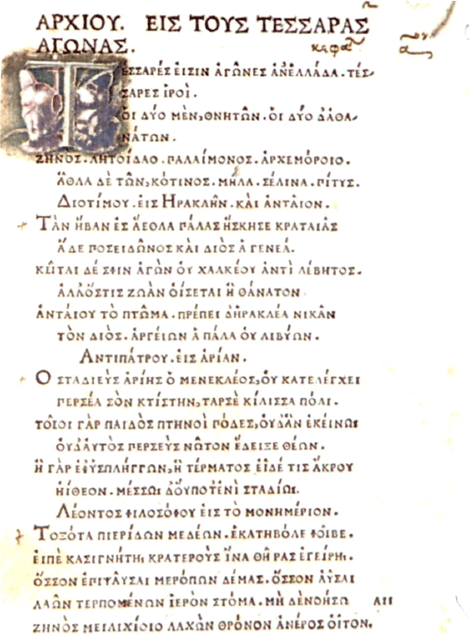 ΑΡΧΙΟΥ. ΕΙΣ ΤΟΥΣ ΤΕΣΣΑΡΑΣ
ΑΓΩΝΑΣ.
ΤΕΣΣΑΡΕΣ ΕΙΣΙΝ ἈΓΩΝΕΣ ἈΝἙΛΛΆΔΑ. ΤΈΣ-
ΣΑΡΕΣ ἹΡΟΊ.
ΟΙ ΔΎΟ ΜῈΝ, ΘΝΗΤῶΝ. ΟΙ ΔΎΟ ΔἈΘΑ-
ΝΆΤΩΝ.
ΖΗΝΌΣ. ΛΗΤΟΪΔΑΟ. ΠΑΛΑΊΜΟΝΟΣ. ἈΡΧΕΜΌΡΟΙΟ.
ἎΘΛΑ ΔῈ ΤῶΝ, ΚΌΤΙΝΟΣ. ΜῆΛΑ. ΣΈΛΙΝΑ. ΠΊΤΥΣ.
ΔΙΟΤΊΜΟΥ. ΕΙΣ ἩΡΑΚΛῆΝ. ΚΑῚ ἈΝΤΑῖΟΝ.
ΤᾺΝ ἭΒΑΝ ἘΣ ἌΕΘΛΑ ΠΆΛΑΣ ἬΣΚΗΣΕ ΚΡΑΤΑΙᾶΣ
ἍΔΕ ΠΟΣΕΙΔῶΝΟΣ ΚΑῚ ΔΙῸΣ Ἁ ΓΕΝΕΆ.
ΚΕῖΤΑΙ ΔΈ ΣΦΙΝ ἈΓῺΝ ΟΥ ΧΑΛΚΈΟΥ ἈΝΤῚ ΛΈΒΗΤΟΣ.
ἈΛΛΌΣΤΙΣ ΖΩᾺΝ ΟΙΣΕΤΑΙ Ἢ ΘΆΝΑΤΟΝ.
ἈΝΤΑΊΟΥ ΤῸ ΠΤῶΜΑ. ΠΡΈΠΕΙ ΔἩΡΑΚΛΈΑ ΝΙΚᾶΝ
ΤῸΝ ΔΙΌΣ. ἈΡΓΕΊΩΝ Ἁ ΠΆΛΑ ΟΥ ΛΙΒΎΩΝ.
ἈΝΤΙΠΆΤΡΟΥ. ΕΙΣ ἈΡΊΑΝ.
Ὁ ΣΤΑΔΙΕῪΣ ἈΡΊΗΣ Ὁ ΜΕΝΕΚΛΈΟΣ, ΟΥ ΚΑΤΕΛΈΓΧΕΙ
ΠΕΡΣΈΑ ΣῸΝ ΚΤΊΣΤΗΝ, ΤΑΡΣῈ ΚΊΛΙΣΣΑ ΠΌΛΙ.
ΤΟῖΟΙ ΓᾺΡ ΠΑΙΔῸΣ ΠΤΗΝΟῚ ΠΌΔΕΣ, ΟΥΔἊΝ ἘΚΕΊΝΩΙ
ΟΥΔΑΥΤῸΣ ΠΕΡΣΕῪΣ ΝῶΤΟΝ ἜΔΕΙΞΕ ΘΈΩΝ.
Ἢ ΓᾺΡ ἘΦΥΣΠΛΉΓΓΩΝ, Ἢ ΤΈΡΜΑΤΟΣ ΕΙΔΈ ΤΙΣ ἌΚΡΟΥ
ἨΪΘΕΟΝ. ΜΈΣΣΩΙ ΔΟΥΠΟΤΕΝῚ ΣΤΑΔΊΩΙ.
ΛΈΟΝΤΟΣ ΦΙΛΟΣΌΦΟΥ ΕΙΣ ΤῸ ΜΟΝΗΜΈΡΙΟΝ.
ΤΟΞΌΤΑ ΠΙΕΡΊΔΩΝ ΜΕΔΈΩΝ. ἙΚΑΤΗΒΌΛΕ ΦΟῖΒΕ.
ΕΙΠῈ ΚΑΣΙΓΝΉΤΗΙ, ΚΡΑΤΕΡΟῪΣ ἽΝΑ ΘῆΡΑΣ ἘΓΕΊΡΗΙ.
ὍΣΣΟΝ ἘΠΙΨΑῦΣΑΙ ΜΕΡΌΠΩΝ ΔΈΜΑΣ. ὍΣΣΟΝ ἈῧΣΑΙ
ΛΑῶΝ ΤΕΡΠΟΜΈΝΩΝ ἹΕΡῸΝ ΣΤΌΜΑ. ΜῊ ΔΕΝΟΉΣΩ ΑΙΙ
ΖΗΝῸΣ ΜΕΙΛΙΧΊΟΙΟ ΛΑΧῺΝ ΘΡΌΝΟΝ ἈΝΈΡΟΣ ΟἾΤΟΝ.